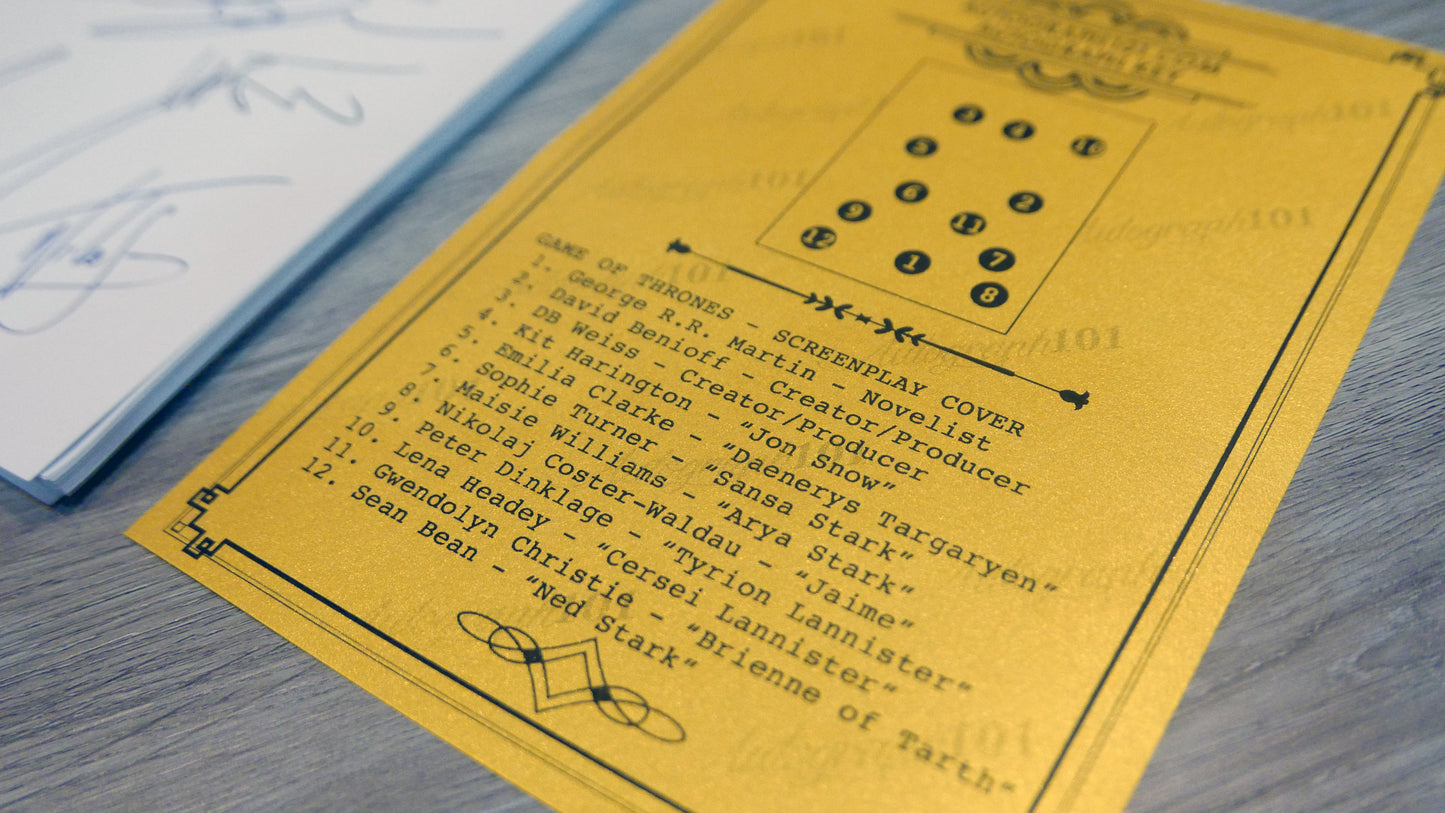 AUTOGRAPH KEY
10
5
6
2
9
11
12
7
1
8
GAME OF THRONES – SCREENPLAY COVER
1. George R.R. Martin – Novelist
2. David Benioff – Creator/Producer
3. DB Weiss – Creator/Producer
4. Kit Harington – "Jon Snow"
5. Emilia Clarke – "Daenerys Targaryen"
6. Sophie Turner – "Sansa Stark"
7. Maisie Williams – "Arya Stark"
8. Nikolaj Coster-Waldau – "Jaime"
9. Peter Dinklage – "Tyrion Lannister"
10. Lena Headey – "Cersei Lannister"
11. Gwendolyn Christie – "Brienne of Tarth"
12. Sean Bean – "Ned Stark"
Autograph101